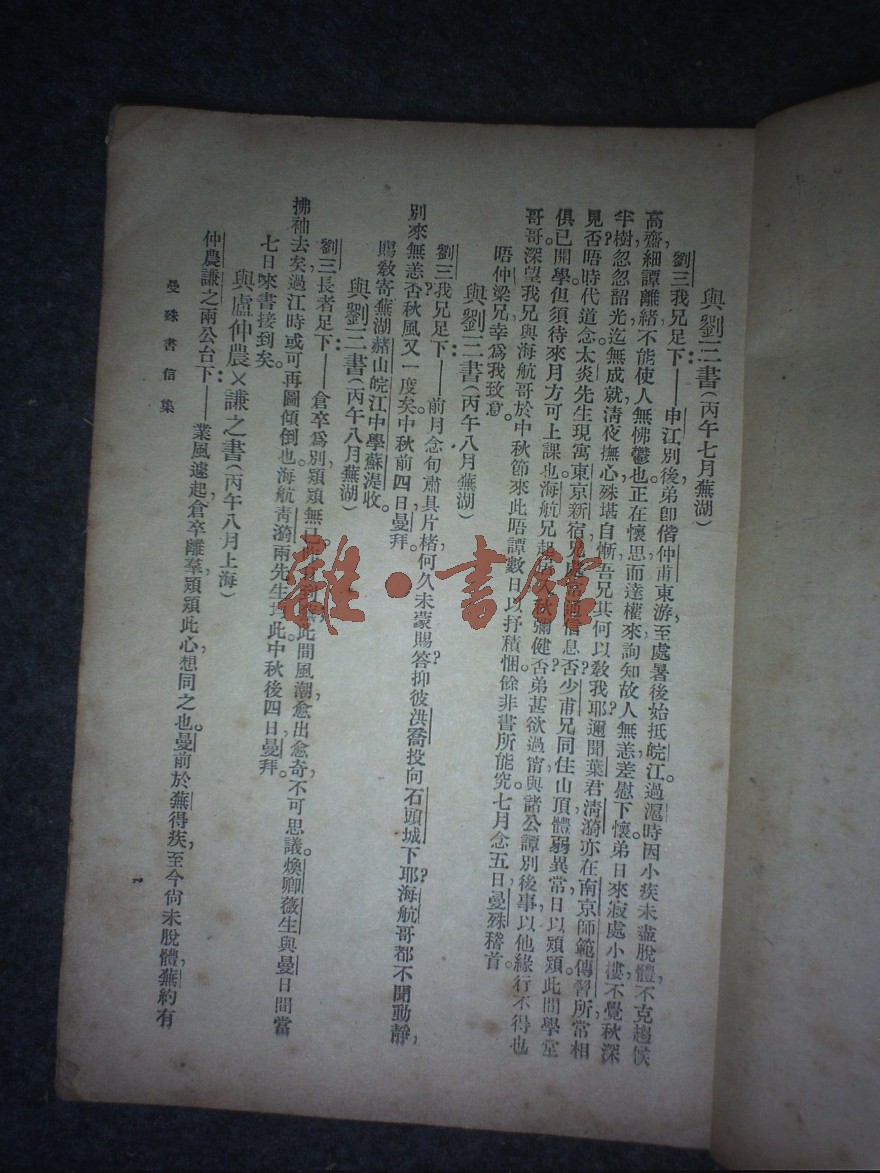 與劉三書(丙午七月蕪湖)
劉三我兄足下:——申江別後,弟卽偕仲甫東游,至處暑後始抵皖江。過滬時因小疾未盡脫體,不克趨候
高齋,細譚離緒,不能使人無怫鬱也。正在懷思,而達權來詢,知故人無恙,差慰下懷。弟日來寂處小樓,不覺秋深
半樹,忽忽韶光,迄無成就,淸夜撫心,殊堪自慚,吾兄其何以敎我耶?邇聞葉君淸漪亦在南京師範傳習所,常相
見否?晤時代道念。太炎先生現寓東京新宿,兄處常通信息否?少甫兄同住山頂,體弱異常,日以顈顈。此間學堂
俱已開學,但須待來月方可上課也。海航兄起居入秋彌健否?弟甚欲過甯與諸公譚別後事,以他緣行不得也
哥哥。深望我兄與海航哥於中秋節來此晤譚數日,以抒積悃。餘非書所能究。七月念五日,曼殊稽首。
晤仲梁兄幸爲我致意。
與劉三書(丙午八月蕪湖)
劉三我兄足下:——前月念旬肅具片楮,何久未蒙賜答?抑彼洪喬投向石頭城下耶?海航哥都不聞動靜,
別來無恙否?秋風又一度矣。中秋前四日,曼拜。
賜敎寄蕪湖赭山皖江中學蘇湜收。
與劉三書(丙午八月蕪湖)
劉三長者足下:——倉卒爲別,顈顈無已。此間風潮愈出愈奇,不可思議。煥卿薇生與曼日間當
拂袖去矣,過江時或可再圖傾倒也。海航靑漪兩先生均此。中秋後四日,曼拜。
七日來書接到矣。
與盧仲農×謙之書(丙午八月上海)
仲農謙之兩公台下:——業風遠起,倉卒離羣,顈顈此心,想同之也。曼前於蕪得疾,至今尙未脫體,蕪約有
曼殊書信集
雜·書館